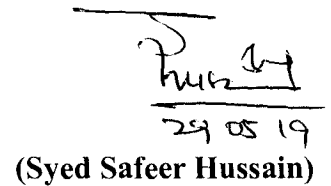 29 05 19
(Syed Safeer Hussain)